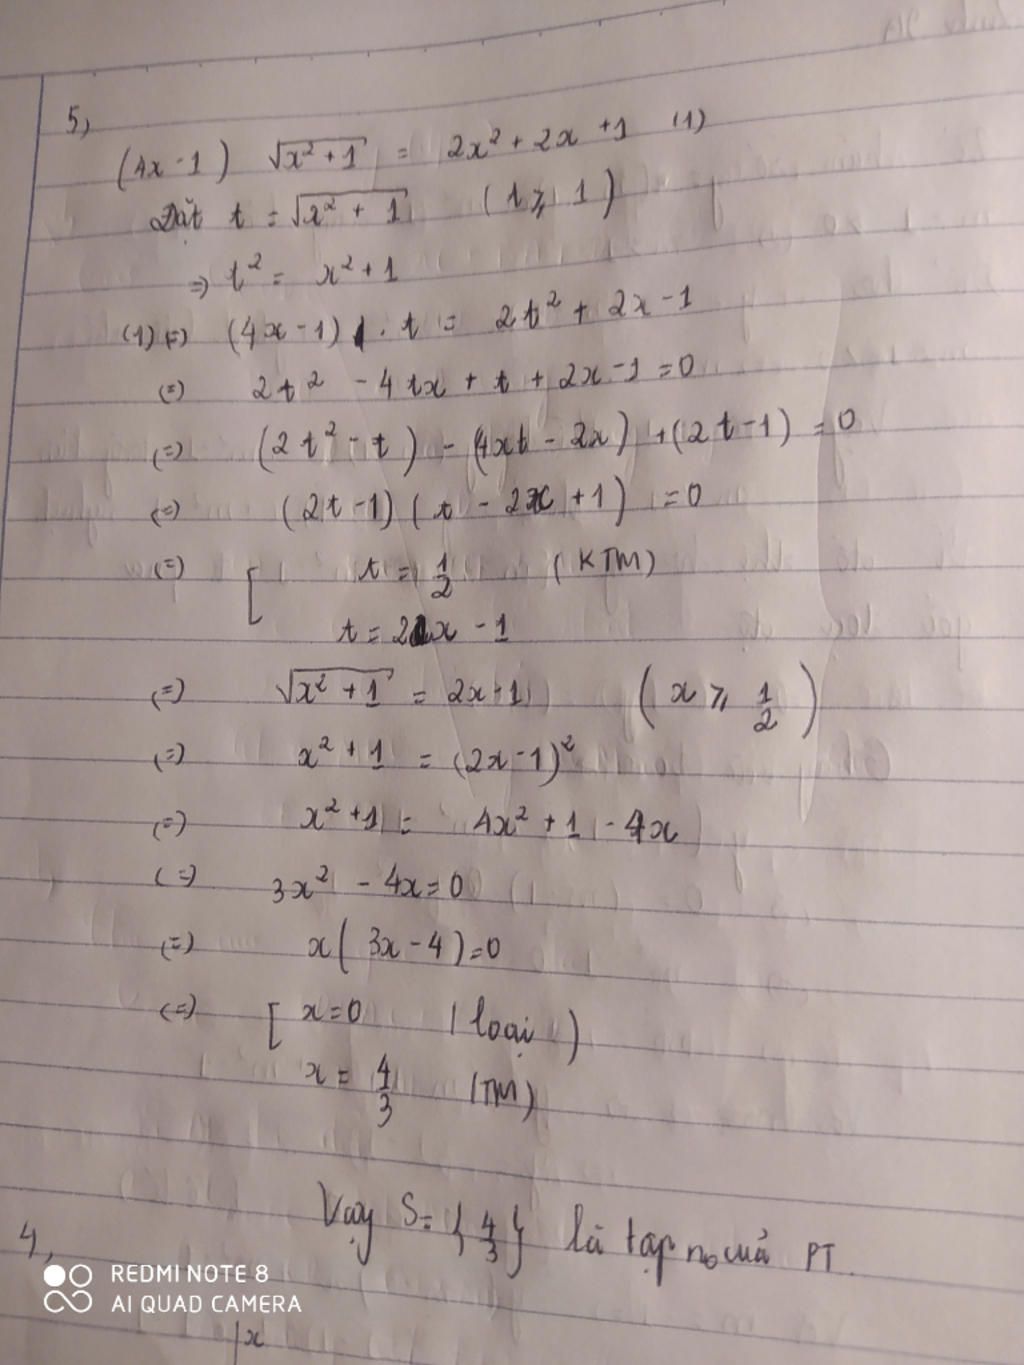 5,
(4x-1) √x²+1 = 2x² + 2x +1 (1)
Đặt t = √x² + 1 (t ⩾ 1)
=> t² = x² + 1
(1) (=) (4x-1) . t = 2t² + 2x - 1
(=) 2t² - 4tx + t + 2x - 1 = 0
(=) (2t² - t) - (4xt - 2x) + (2t - 1) = 0
(=) (2t - 1) ( t - 2x + 1) = 0
(=) [ t = 1/2 (KTM)
t = 2x - 1
(=) √x² + 1 = 2x-1 (x ⩾ 1/2)
(=) x² + 1 = (2x - 1)²
(=) x² + 1 = 4x² + 1 - 4x
(=) 3x² - 4x = 0
(=) x( 3x - 4 ) = 0
(=) [ x = 0 (loại)
x = 4/3 (TM)
Vậy S = { 4/3 } là tập no của PT.
4,
REDMI NOTE 8
AI QUAD CAMERA
|x